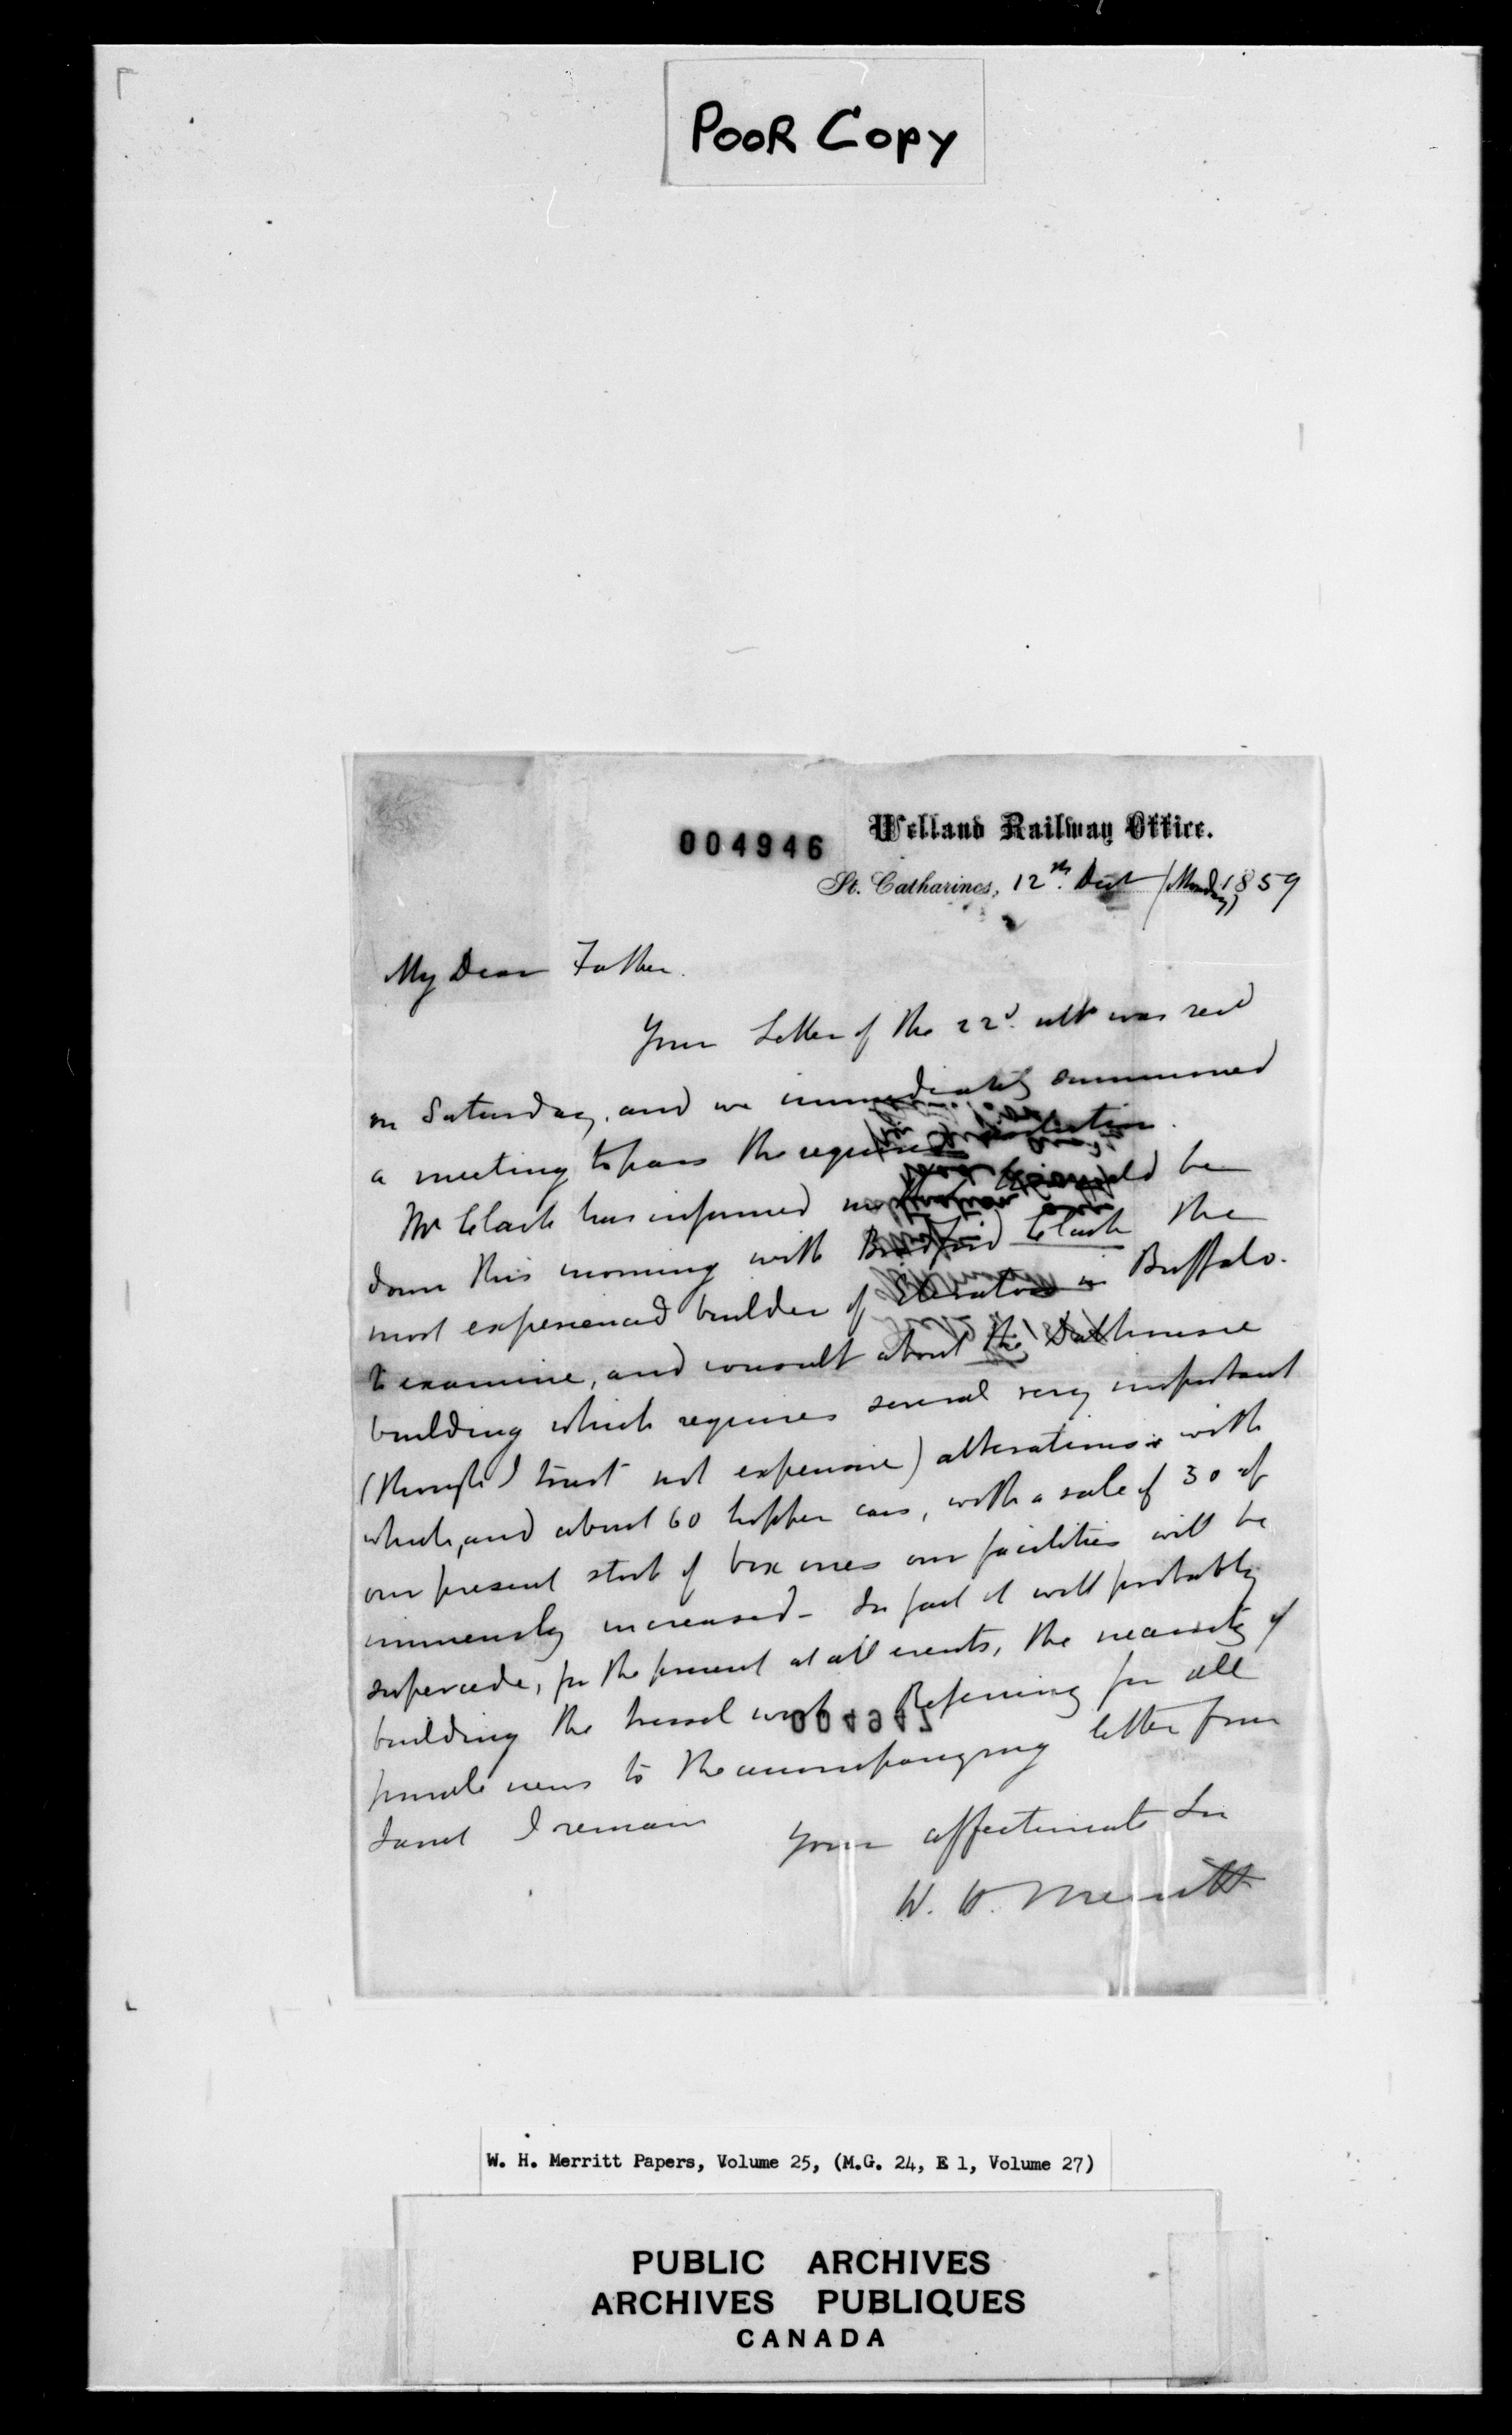 POOR Copy
004946
Welland Railway Office.
St. Catharines, 12th. Dect (Monday) 1859
My Dear Father.
Your Letter of the 22d. ult was recd
on Saturday, and we immediately summoned
a meeting to pass the required resolution.
Mr Clark has informed me that he would be
down this morning with Bradford Clark the
most experienced builder of Elevators in Buffalo.
to examine, and consult about the Dalhousie
building which requires several very important
(though I trust not expensive) alterations with
which, and about 60 hopper cars, with a sale of 30 of
our present stock of box ones our facilities will be
immensely increased - In fact it will probably
supercede, for the present at all events, the necessity of
building the tressel work Referring for all
private news to the accompanying letter from
Janet I remain
Your affectionate Son
W. H. Merritt
004947
W. H. Merritt Papers, Volume 25, (M.G. 24, E 1, Volume 27)
PUBLIC ARCHIVES
ARCHIVES PUBLIQUES
CANADA